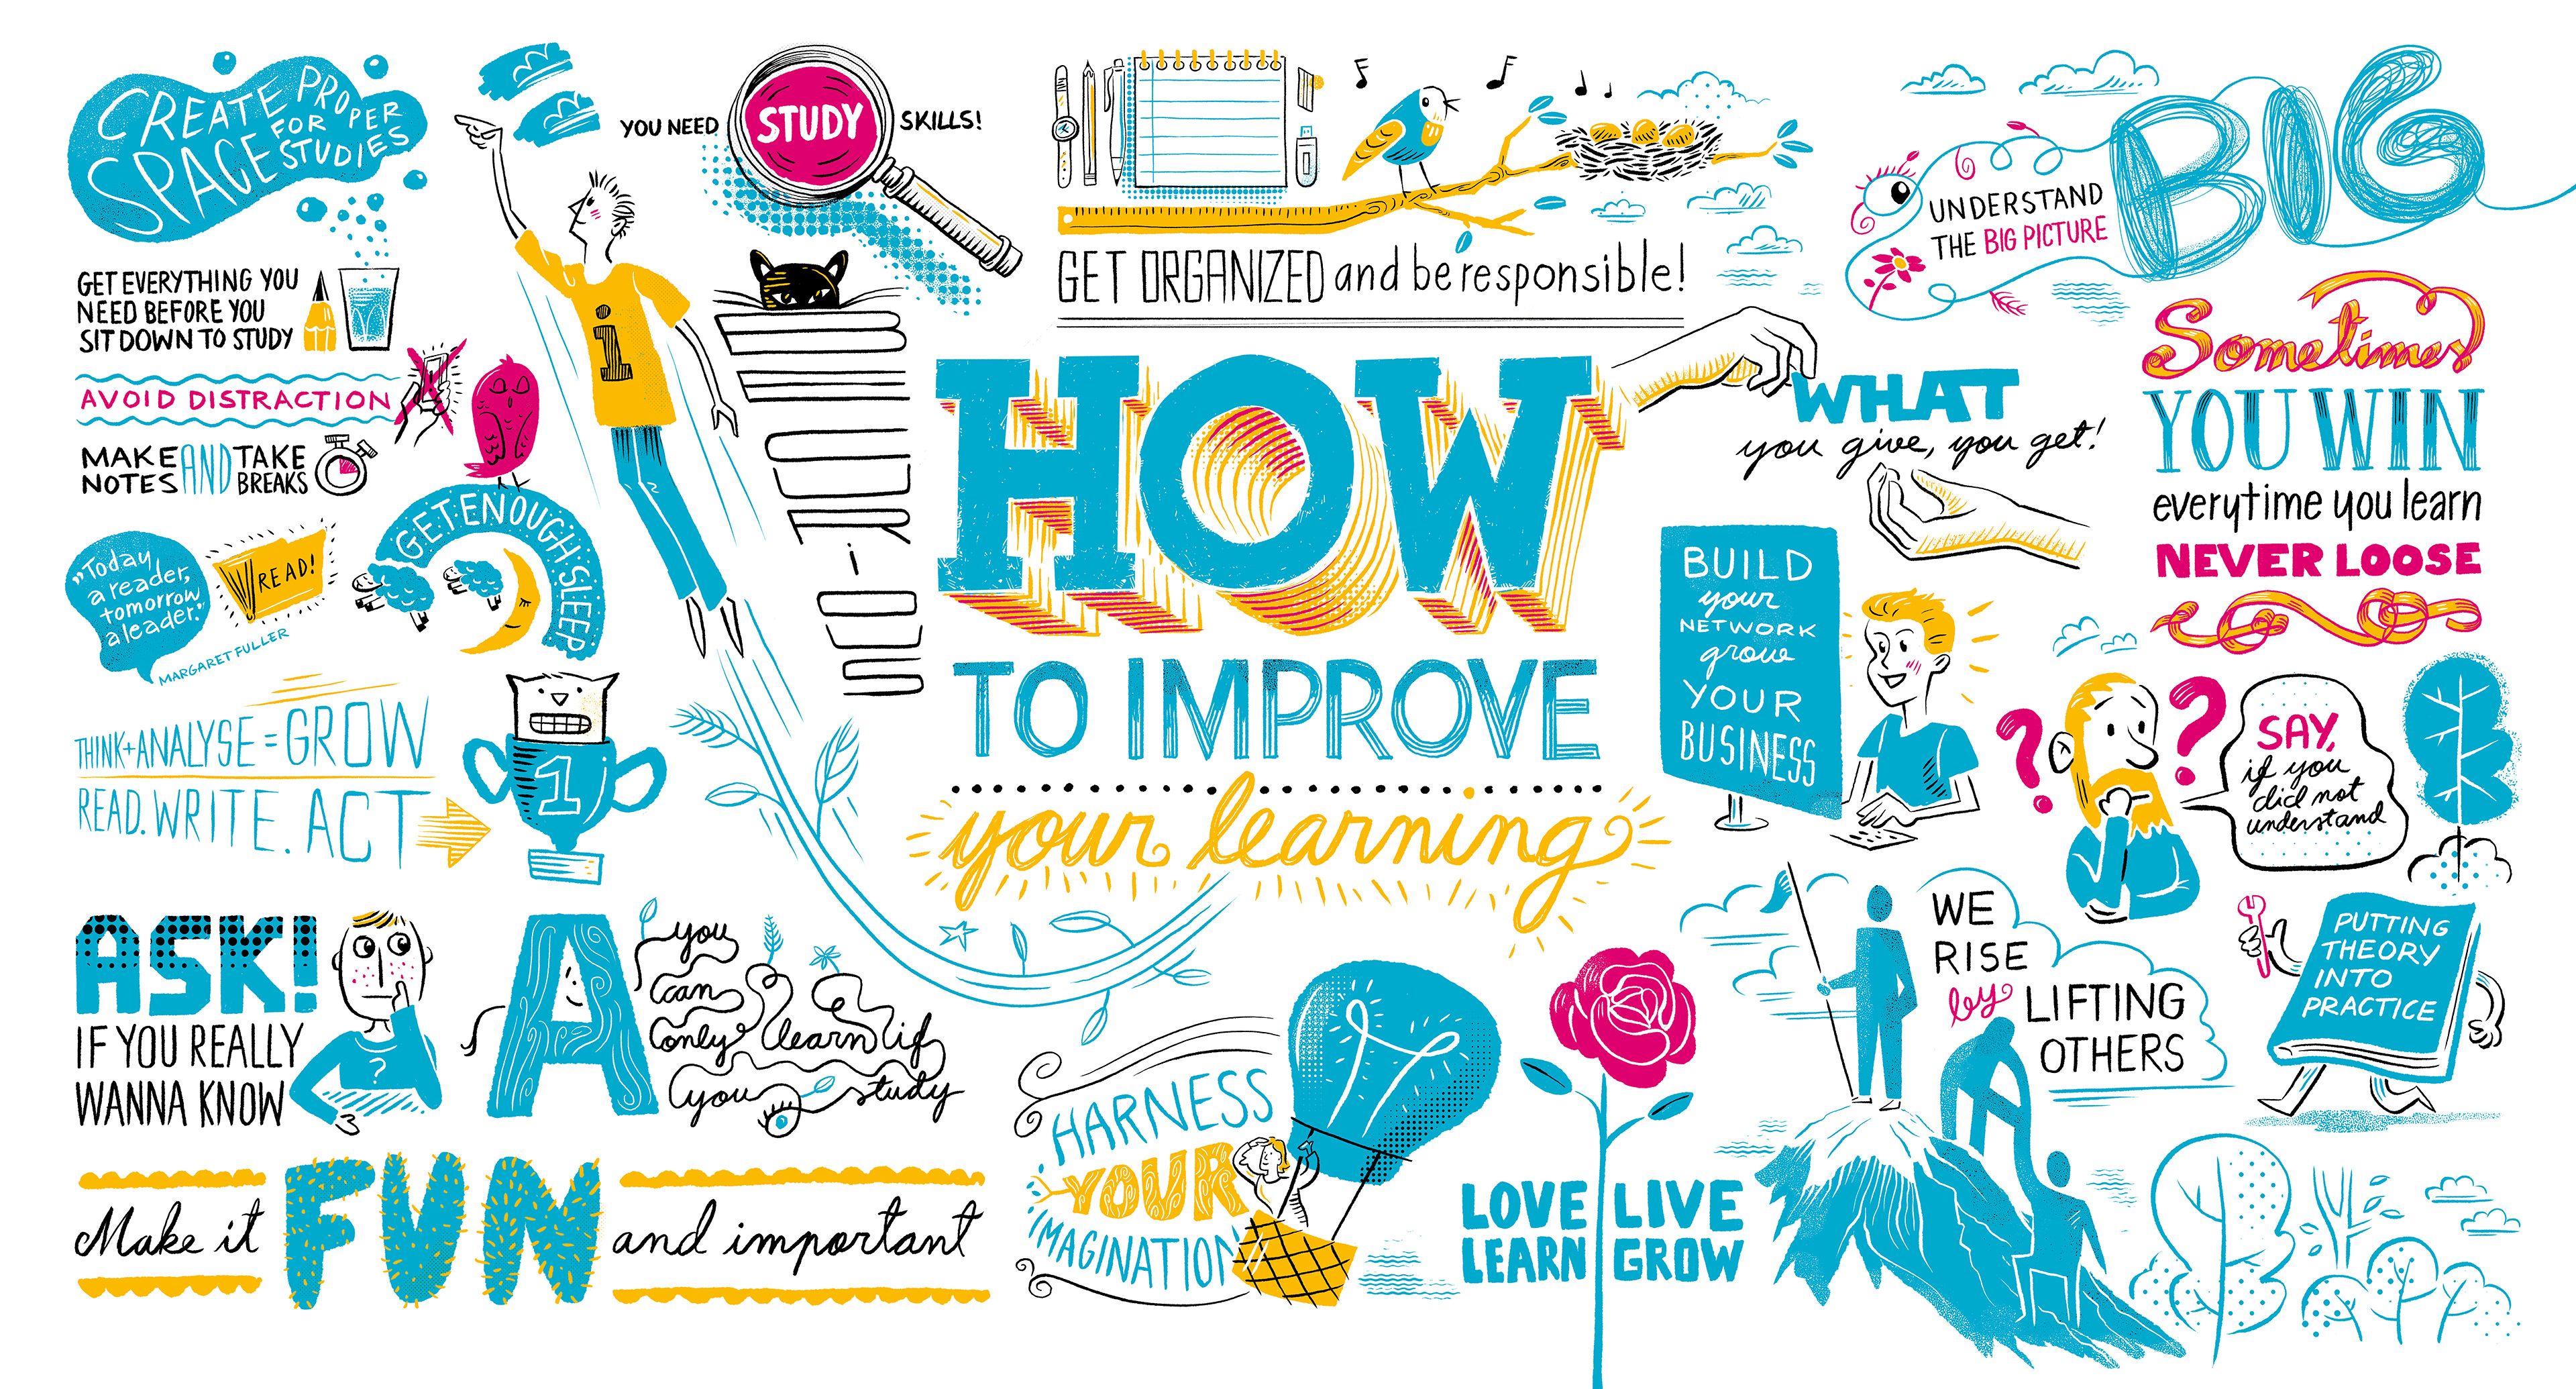 CREATE PROPER
SPACE FOR
STUDIES
GET EVERYTHING YOU
NEED BEFORE YOU
SIT DOWN TO STUDY
AVOID DISTRACTION
MAKE NOTES AND TAKE BREAKS
„Today
a reader,
tomorrow
a leader."
MARGARET FULLER
READ!
GET ENOUGH SLEEP
THINK+ANALYSE = GROW
READ. WRITE. ACT
1
ASK!
IF YOU REALLY
WANNA KNOW
?
A
you
can
only learn if
you study
Make it FUN and important
i
YOU NEED STUDY SKILLS!
GET ORGANIZED and be responsible!
HOW
TO IMPROVE
your learning
HARNESS
YOUR
IMAGINATION
LOVE LIVE
LEARN GROW
UNDERSTAND
THE BIG PICTURE
BIG
WHAT
you give, you get!
Sometimes
YOU WIN
everytime you learn
NEVER LOOSE
BUILD
your
NETWORK
grow
YOUR
BUSINESS
? ?
SAY,
if you
did not
understand
WE
RISE
by LIFTING
OTHERS
PUTTING
THEORY
INTO
PRACTICE